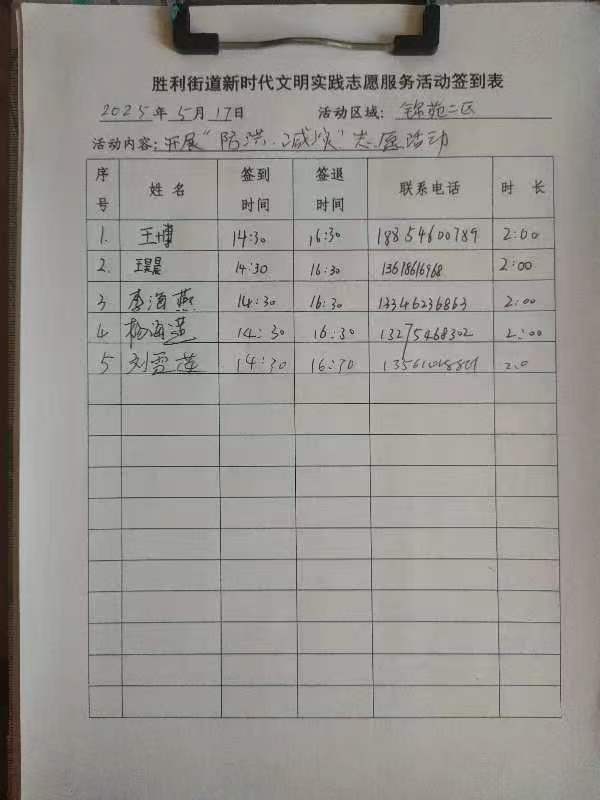 胜利街道新时代文明实践志愿服务活动签到表
2025年5月17日 活动区域：锦苑二区
活动内容：开展"防洪、减灾"志愿活动
序号 姓名 签到时间 签退时间 联系电话 时长
1. 王博 14:30 16:30 18854600789 2:00
2. 王昊晨 14:30 16:30 13618616968 2:00
3 李海燕 14:30 16:30 13346236863 2:00
4 杨海燕 14:30 16:30 13275468302 2:00
5 刘雪莲 14:30 16:30 2.0